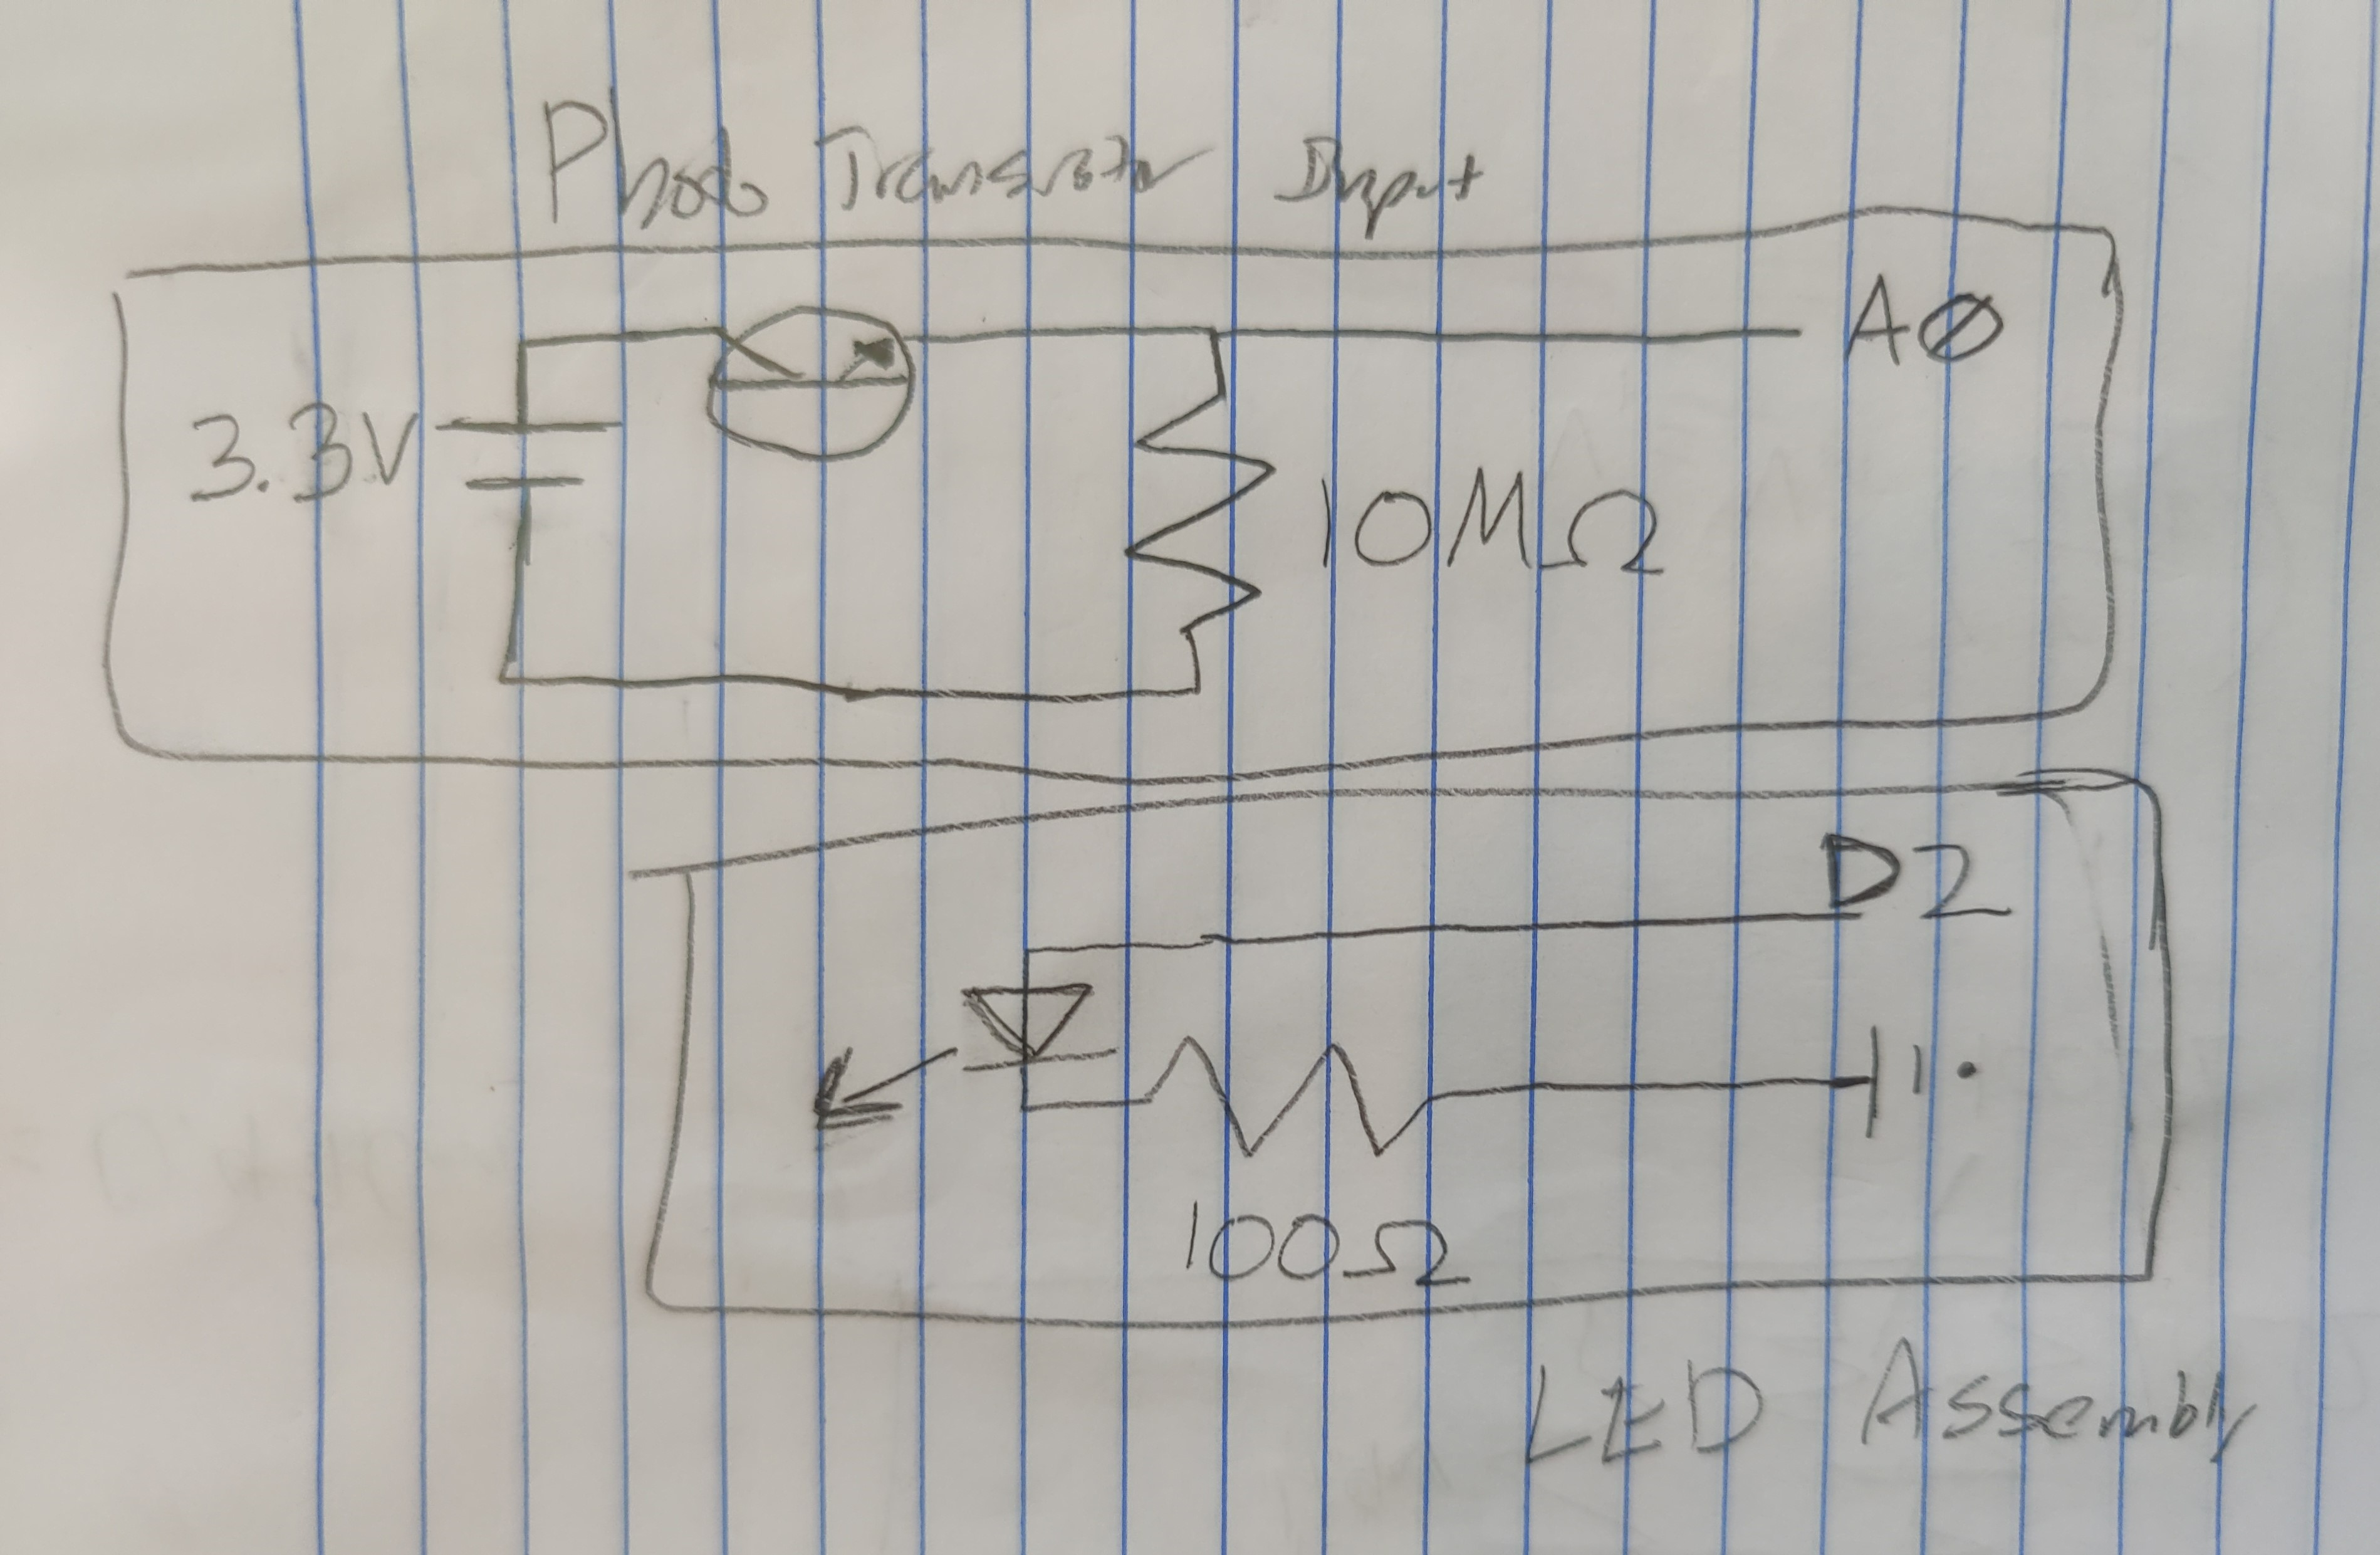 Photo Transistor Input
AØ
3.3V
10MΩ
D2
100Ω
LED Assembly